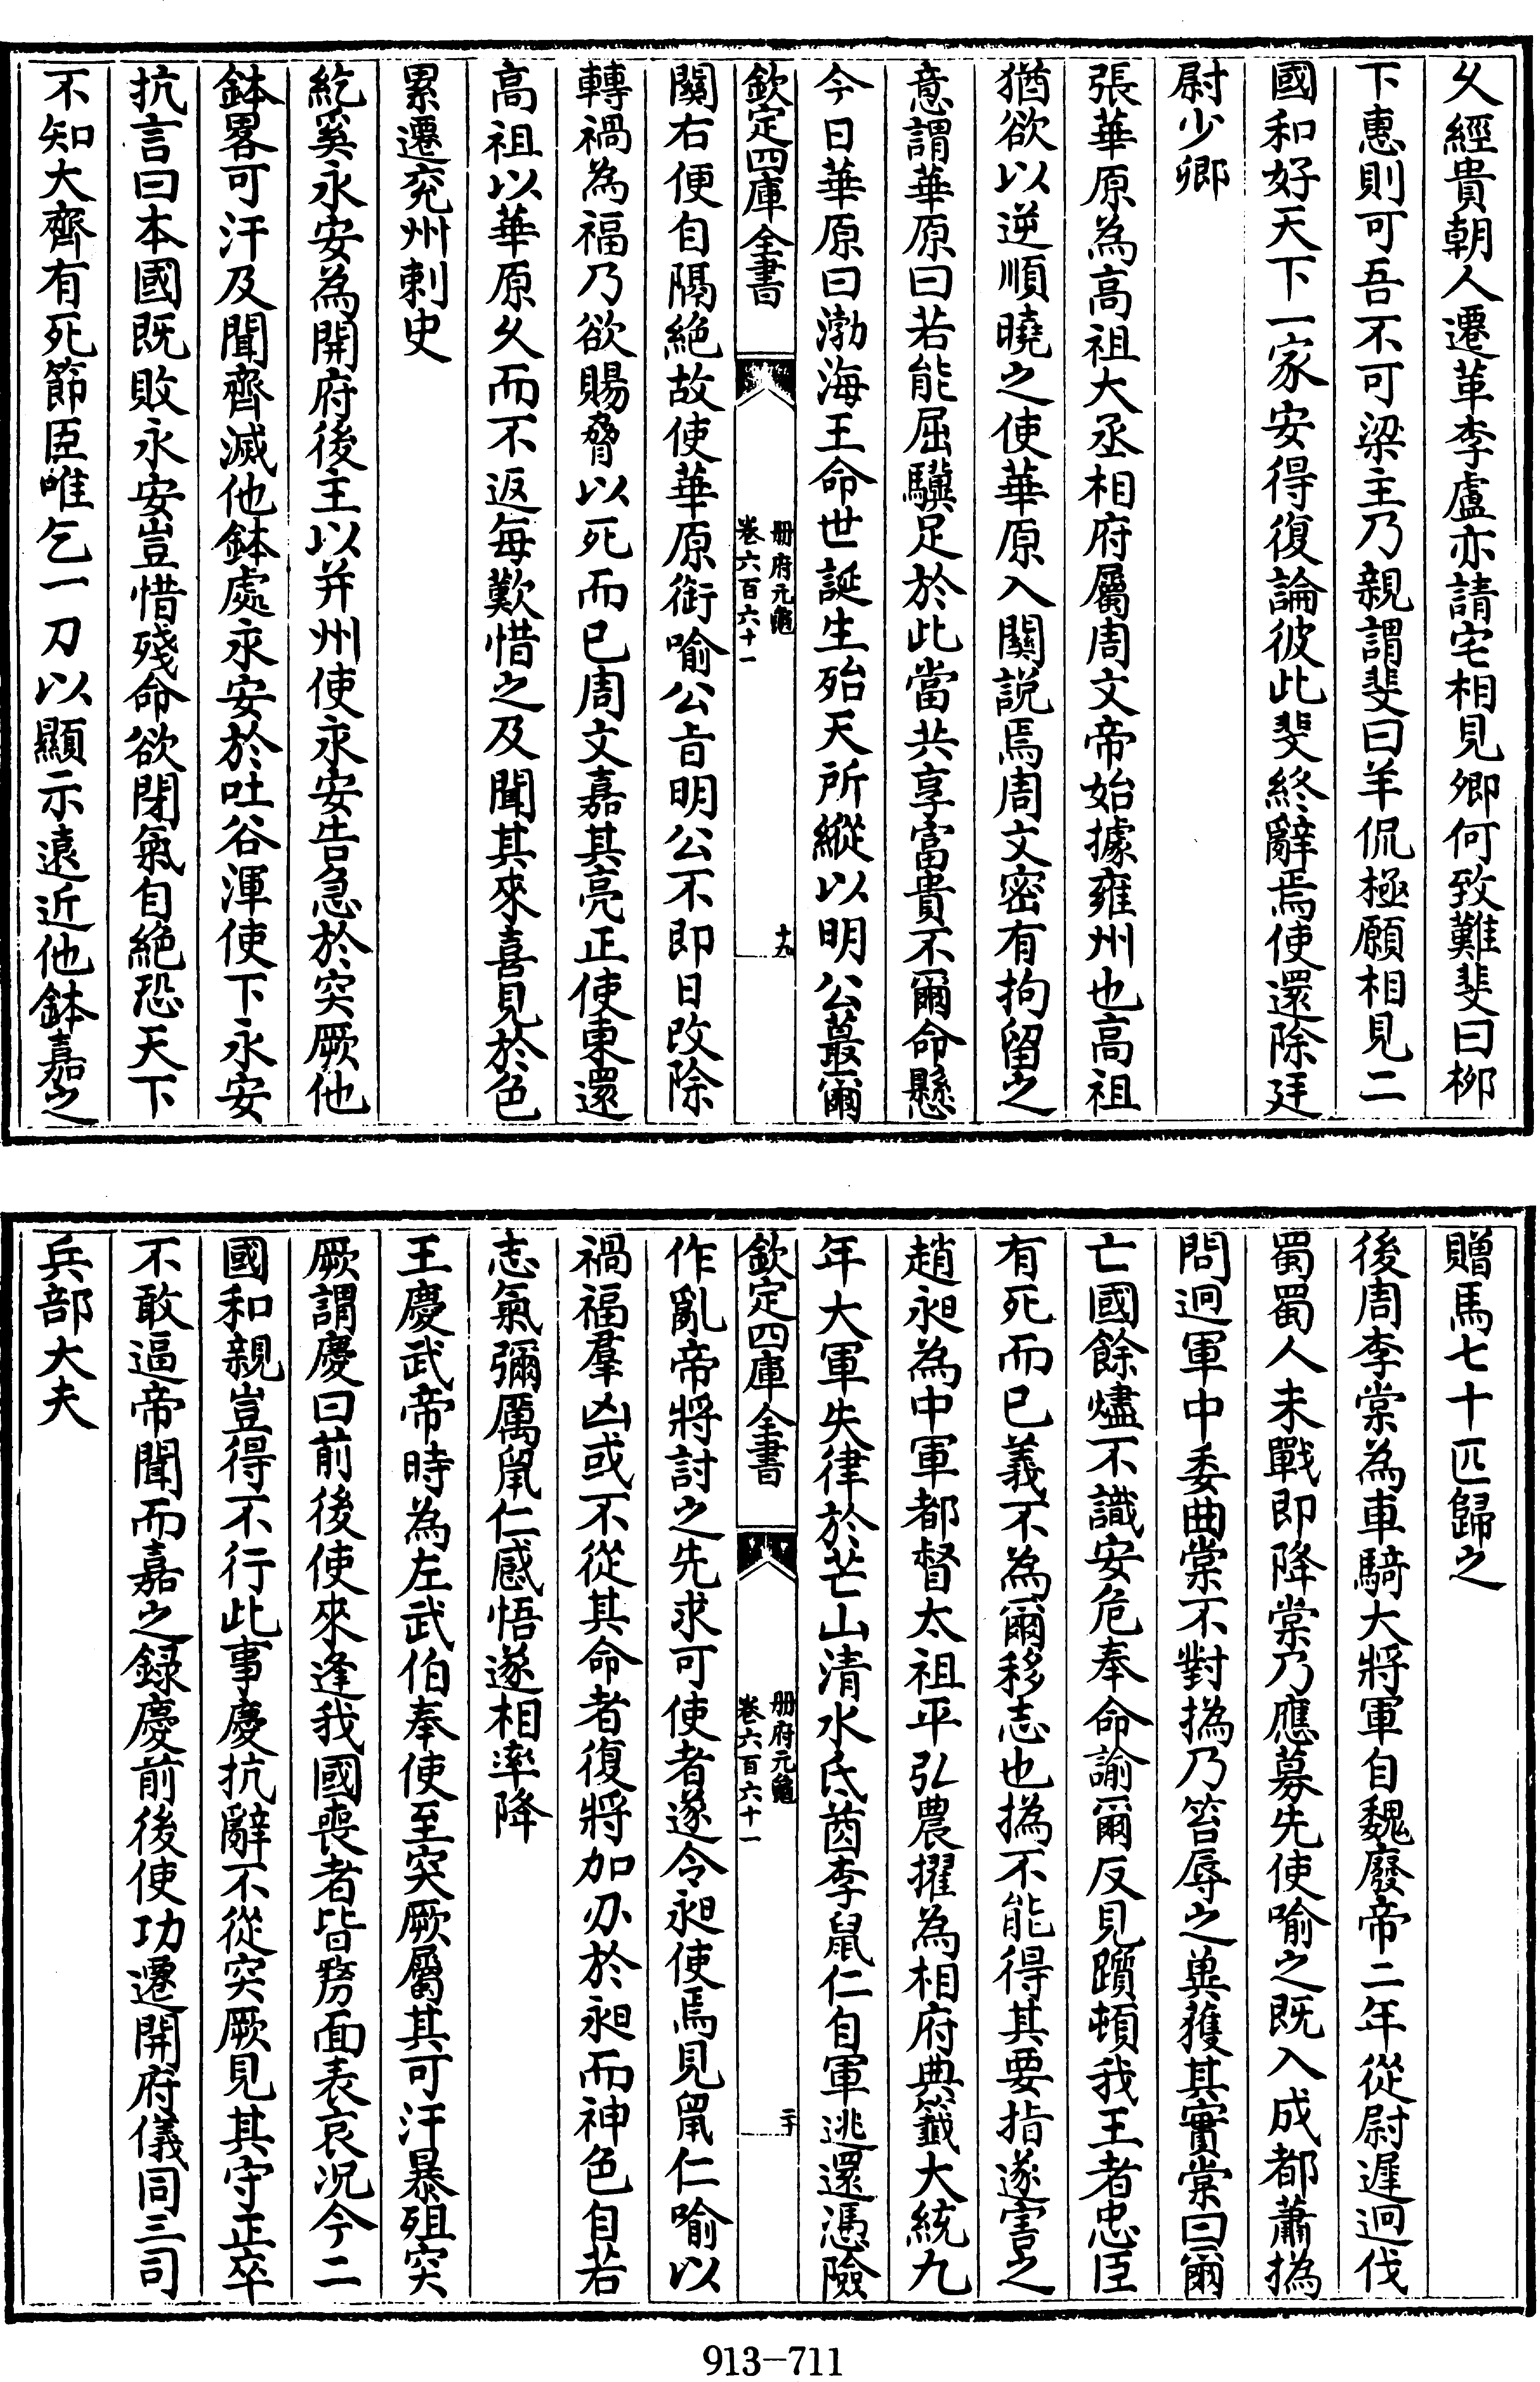 乆經貴朝人遷革李盧亦請宅相見卿何致難斐曰栁
下惠則可吾不可梁主乃親謂斐曰羊侃極願相見二
國和好天下一家安得復論彼此斐終辭焉使還除廷
尉少卿
張華原為高祖大丞相府屬周文帝始據雍州也高祖
猶欲以逆順曉之使華原入關說焉周文密有拘留之
意謂華原曰若能屈驥足於此當共享富貴不爾命懸
今日華原曰渤海王命世誕生殆天所縱以明公蕞爾
欽定四庫全書
冊府元龜
卷六百六十一
十九
關右便自隔絶故使華原銜喻公旨明公不即日改除
轉禍為福乃欲賜脅以死而已周文嘉其亮正使東還
高祖以華原乆而不返每歎惜之及聞其來喜見於色
累遷兖州刺史
紇奚永安為開府後主以并州使永安告急於突厥他
鉢畧可汗及聞齊滅他鉢處永安於吐谷渾使下永安
抗言曰本國既敗永安豈惜殘命欲閉氣自絶恐天下
不知大齊有死節臣唯乞一刀以顯示遠近他鉢嘉之
贈馬七十匹歸之
後周李棠為車騎大將軍自魏廢帝二年從尉遲迥伐
蜀蜀人未戰即降棠乃應募先使喻之既入成都蕭撝
問迥軍中委曲棠不對撝乃笞辱之兾獲其實棠曰爾
亡國餘燼不識安危奉命諭爾反見躓頓我王者忠臣
有死而已義不為爾移志也撝不能得其要指遂害之
趙昶為中軍都督太祖平弘農擢為相府典籤大統九
年大軍失律於芒山清水氐茵李鼠仁自軍逃還憑險
欽定四庫全書
冊府元龜
卷六百六十一
二十
作亂帝將討之先求可使者遂令昶使焉見鼠仁喻以
禍福羣凶或不從其命者復將加刃於昶而神色自若
志氣彌厲鼠仁感悟遂相率降
王慶武帝時為左武伯奉使至突厥屬其可汗暴殂突
厥謂慶曰前後使來逢我國喪者皆剺面表哀況今二
國和親豈得不行此事慶抗辭不從突厥見其守正卒
不敢逼帝聞而嘉之録慶前後使功遷開府儀同三司
兵部大夫
913-711